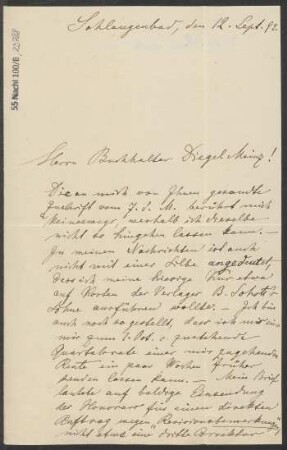 55 Nachl 100/B,
Schlangenbad, den 12. Sept. 92.
Herrn Buchhalter Diegel Mainz!
Die an mich von Ihnen gesandte
Zuschrift vom 7. d. M. berührt mich
keineswegs weshalb ich dieselbe
nicht so hingehen lassen kann.
In meinen Nachrichten ist auch
nicht mit einer Silbe angedeutet,
dass ich meine hiesige Kur etwa
auf Kosten der Verleger B. Schott's
Söhne ausführen wollte. Ich bin
auch noch so gestellt, dass ich
mir zum 1. Oct. zustehende
Quartalrate einer mir zugehenden
Rente ein paar Wochen früher
senden lassen kann. Mein Brief
lautete auf baldige Einsendung
des Honorars für einen direkten
Auftrag wegen Revisionsbemerkung,
nicht etwa eine dritte Korrektur